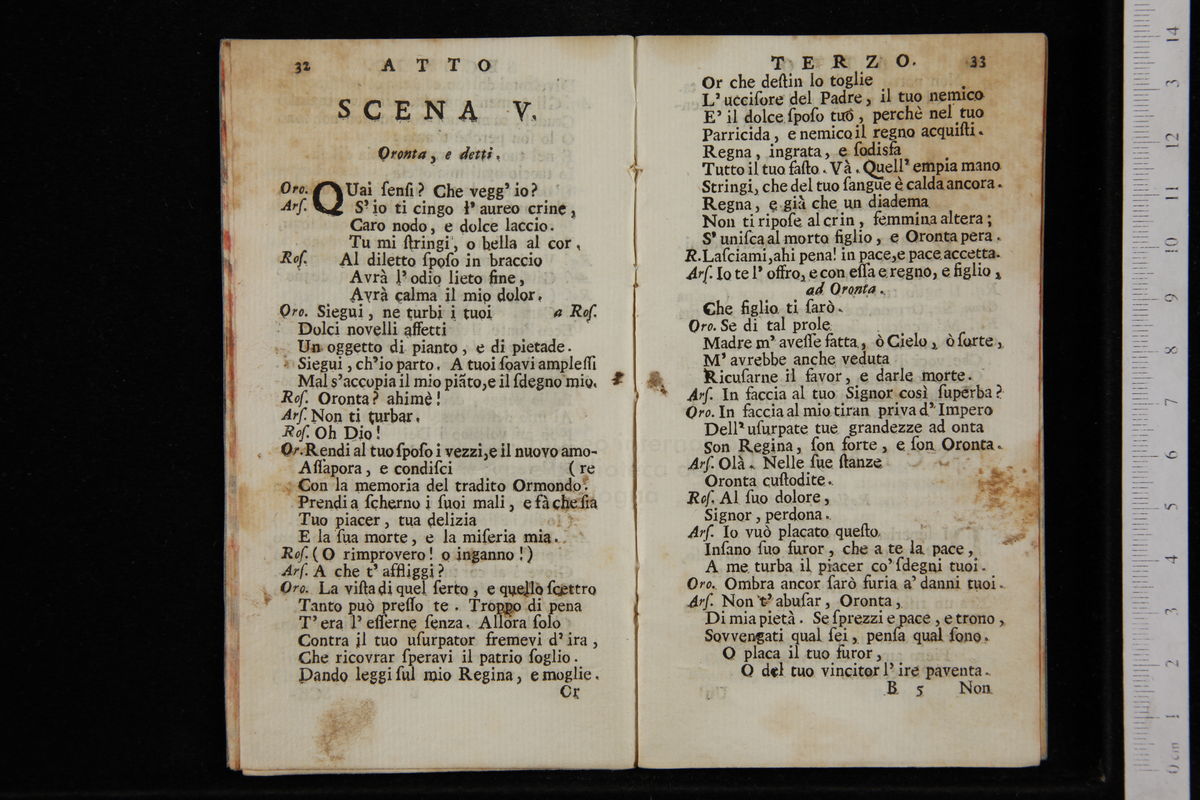 32 ATTO
SCENA V.
Oronta, e detti.
Oro. QUai ſenſi? Che vegg' io?
Arſ. S' io ti cingo l' aureo crine,
Caro nodo, e dolce laccio.
Tu mi ſtringi, o bella al cor.
Roſ. Al diletto ſpoſo in braccio
Avrà l' odio lieto fine,
Avrà calma il mio dolor.
Oro. Siegui, ne turbi i tuoi a Roſ.
Dolci novelli affetti
Un oggetto di pianto, e di pietade.
Siegui, ch'io parto. A tuoi ſoavi ampleſſi
Mal s'accopia il mio piãto,e il ſdegno mio.
Roſ. Oronta? ahimè!
Arſ. Non ti turbar.
Roſ. Oh Dio!
Or. Rendi al tuo ſpoſo i vezzi,e il nuovo amo-
Aſſapora, e condiſci (re
Con la memoria del tradito Ormondo.
Prendi a ſcherno i ſuoi mali, e fà che ſia
Tuo piacer, tua delizia
E la ſua morte, e la miſeria mia.
Roſ. (O rimprovero! o inganno!)
Arſ. A che t' affliggi?
Oro. La viſta di quel ſerto, e quello ſcettro
Tanto può preſſo te. Troppo di pena
T' era l' eſſerne ſenza. Allora ſolo
Contra il tuo uſurpator fremevi d' ira,
Che ricovrar ſperavi il patrio ſoglio.
Dando leggi ſul mio Regina, e moglie.
Or
TERZO. 33
Or che deſtin lo toglie
L' ucciſore del Padre, il tuo nemico
E' il dolce ſpoſo tuo, perchè nel tuo
Parricida, e nemico il regno acquiſti.
Regna, ingrata, e ſodisfa
Tutto il tuo faſto. Và. Quell' empia mano
Stringi, che del tuo ſangue è calda ancora.
Regna, e già che un diadema
Non ti ripoſe al crin, femmina altera;
S' uniſca al morto figlio, e Oronta pera.
R. Laſciami,ahi pena! in pace,e pace accetta.
Arſ. Io te l' offro, e con eſſa e regno, e figlio,
ad Oronta.
Che figlio ti ſarò.
Oro. Se di tal prole
Madre m' aveſſe fatta, ò Cielo, ò ſorte,
M' avrebbe anche veduta
Ricuſarne il favor, e darle morte.
Arſ. In faccia al tuo Signor così ſuperba?
Oro. In faccia al mio tiran priva d' Impero
Dell' uſurpate tue grandezze ad onta
Son Regina, ſon forte, e ſon Oronta.
Arſ. Olà. Nelle ſue ſtanze
Oronta cuſtodite.
Roſ. Al ſuo dolore,
Signor, perdona.
Arſ. Io vuò placato queſto
Inſano ſuo furor, che a te la pace,
A me turba il piacer co' ſdegni tuoi.
Oro. Ombra ancor ſarò furia a' danni tuoi.
Arſ. Non t' abuſar, Oronta,
Di mia pietà. Se ſprezzi e pace, e trono,
Sovvengati qual ſei, penſa qual ſono.
O placa il tuo furor,
O del tuo vincitor l' ire paventa.
B 5 Non